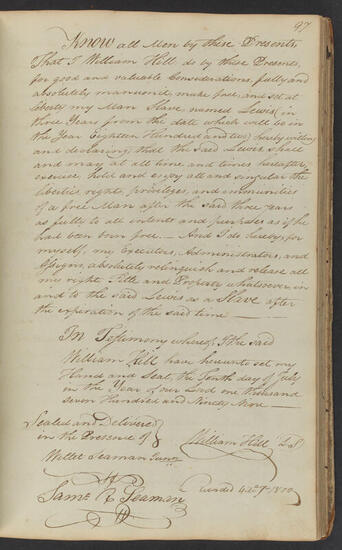 97
Know all Men by these Presents,
That I William Hill do by these Presents,
for good and valuable Considerations, fully and
absolutely manumit, make free, and set at
liberty my Man Slave named Lewis (in
three Years from the date which will be in
the Year Eighteen Hundred and two) hereby willing
and declaring, that the said Lewis shall
and may at all time and times hereafter,
exercise, hold and enjoy all and singular the
liberties rights, privileges, and immunities
of a free Man after the said three years
as fully to all intents and purposes as if he
had been born free. — And I do hereby, for
myself, my Executors, Administrators, and
Assigns, absolutely relinquish and release all
my right, Title and Property whatsoever, in
and to the said Lewis as a Slave after
the experation of the said time —
In Testimony whereof, I the said
William Hill have hereunto set my
Hand and Seal, the Tenth day of July
in the Year of our Lord one thousand
seven Hundred and Ninety Nine —
Sealed and Delivered
in the Presence of
William Hill LS
Willet Seaman Junr
Saml R Seaman
1800